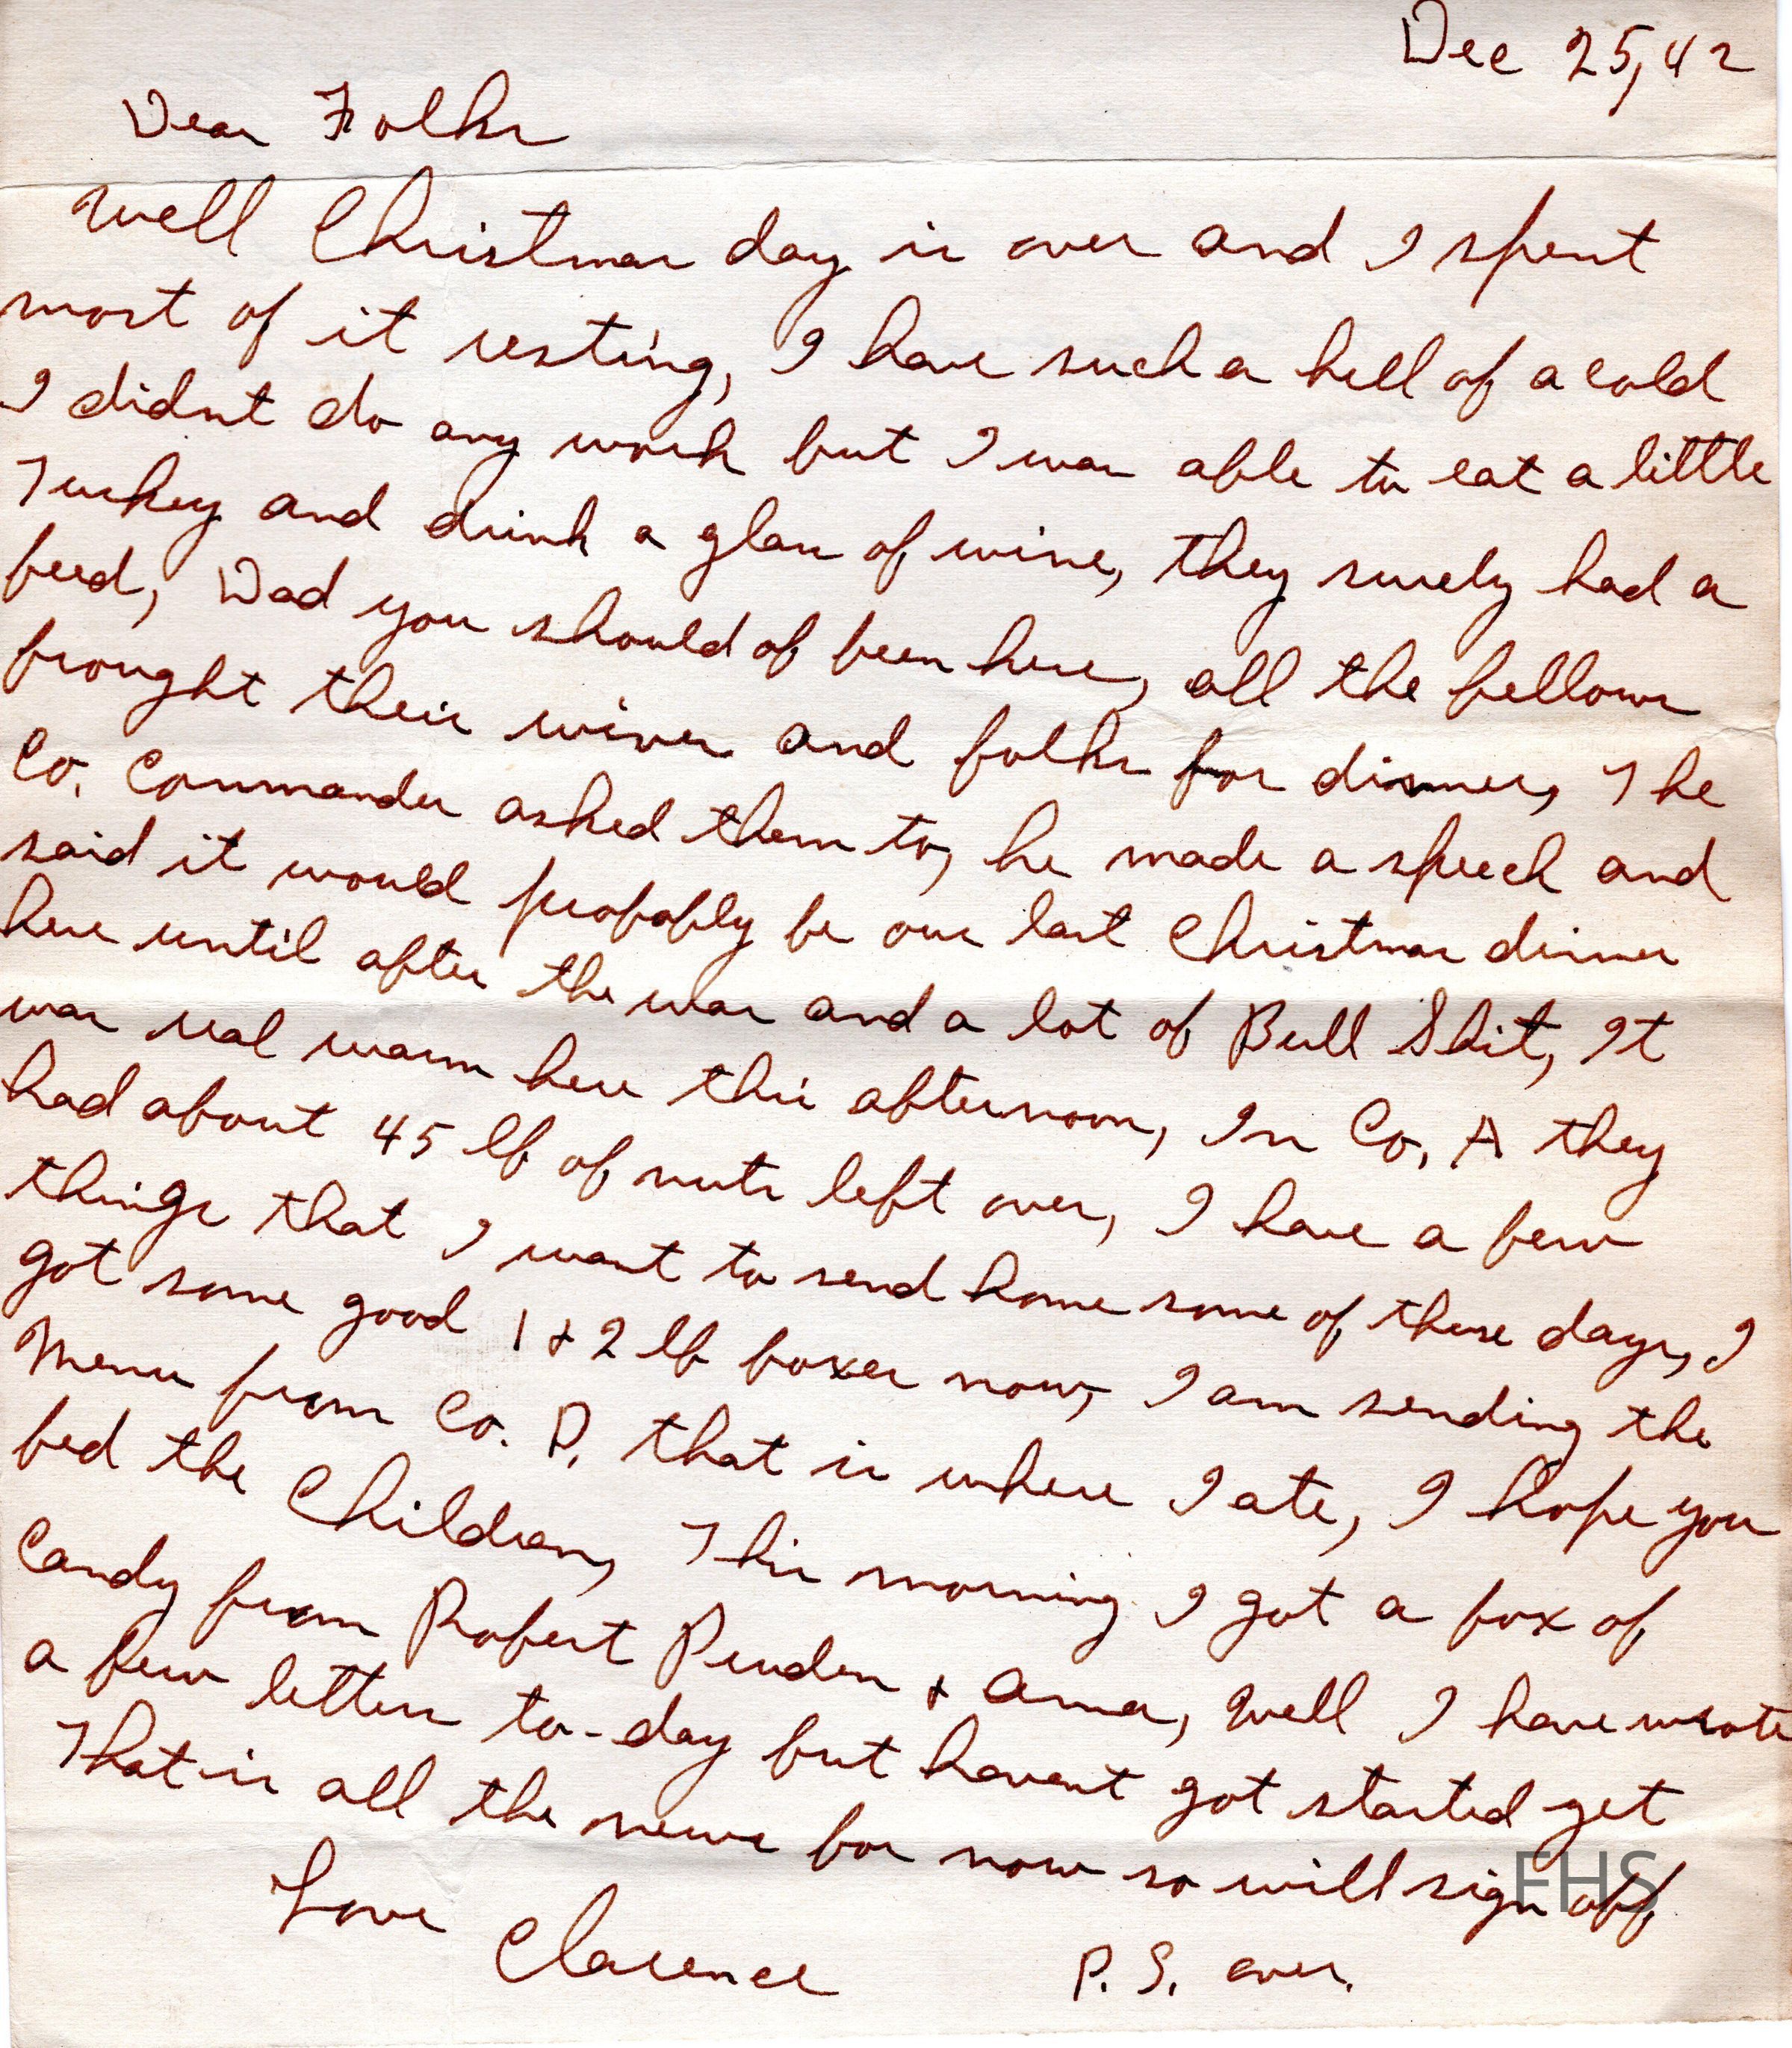 Dec 25, 42
Dear Folks
Well Christmas day is over and I spent
most of it resting, I have such a hell of a cold
I didnt do any work but I was able to eat a little
Turkey and drink a glass of wine, they surely had a
feed, Dad you should of been here, all the fellows
brought their wives and folks for dinner, The
Co. Commander asked them to, he made a speech and
said it would probably be our last Christmas dinner
here until after the war and a lot of Bull Shit, It
was real warm here this afternoon, In Co, A they
had about 45 lb of nuts left over, I have a few
things that I want to send home some of these days, I
got some good 1 + 2 lb boxes now, I am sending the
Menu from Co. D. that is where I ate, I hope you
fed the Children, This morning I got a box of
Candy from Robert + , Well I have wrote
a few letters to-day but havent got started yet
That is all the news for now so will sign off,
Love
Clarence
P. S. over.
FHS